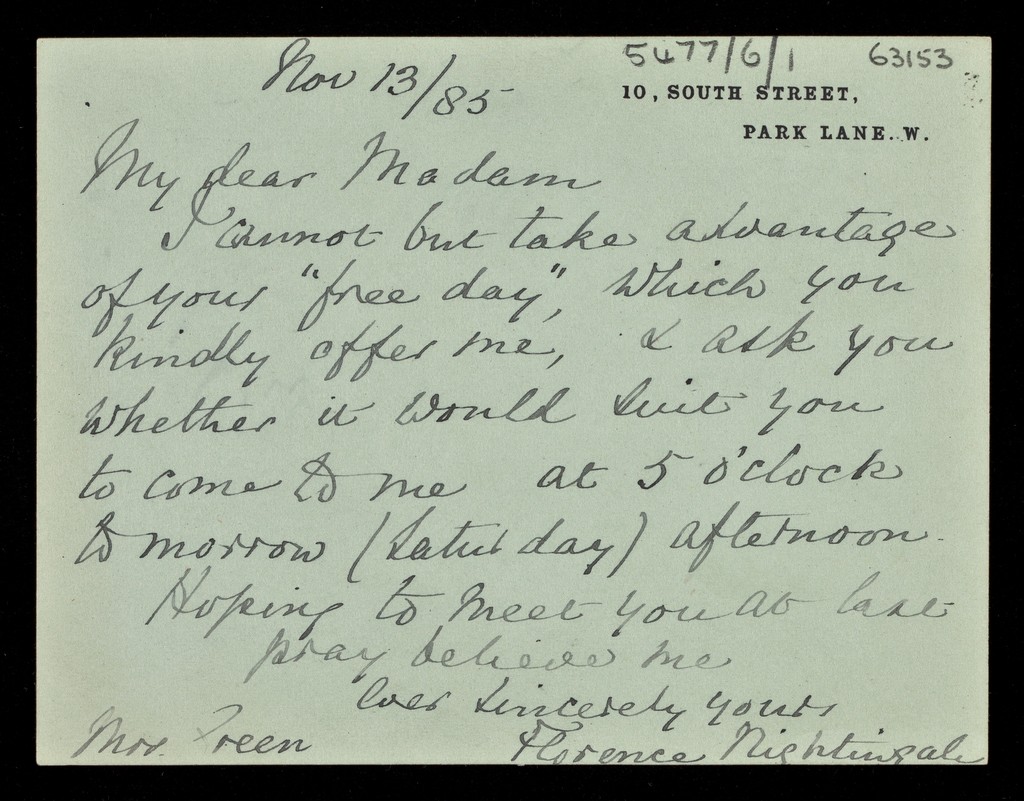 5477/6/1 63153
Nov 13/85
10, SOUTH STREET,
PARK LANE. W.
My dear Madam
I cannot but take advantage
of your "free day", which you
kindly offer me, & ask you
whether it would suit you
to come to me at 5 o'clock
to morrow (Saturday) afternoon.
Hoping to meet you at last
pray believe me
ever sincerely yours
Mrs. Green Florence Nightingale